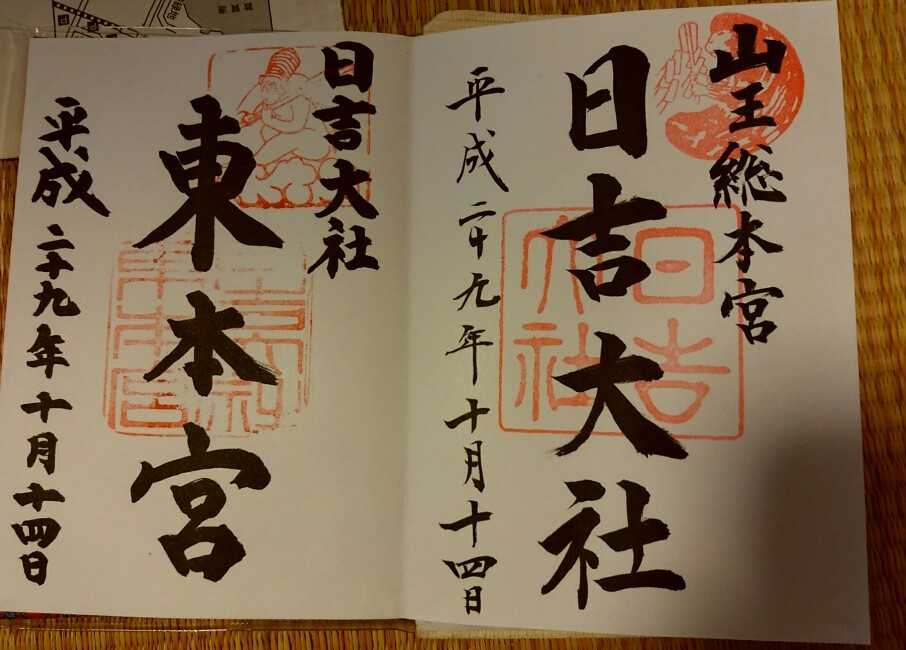 山王総本宮
日吉大社
平成二十九年十月十四日
日吉大社
日吉大社
東本宮
平成二十九年十月十四日